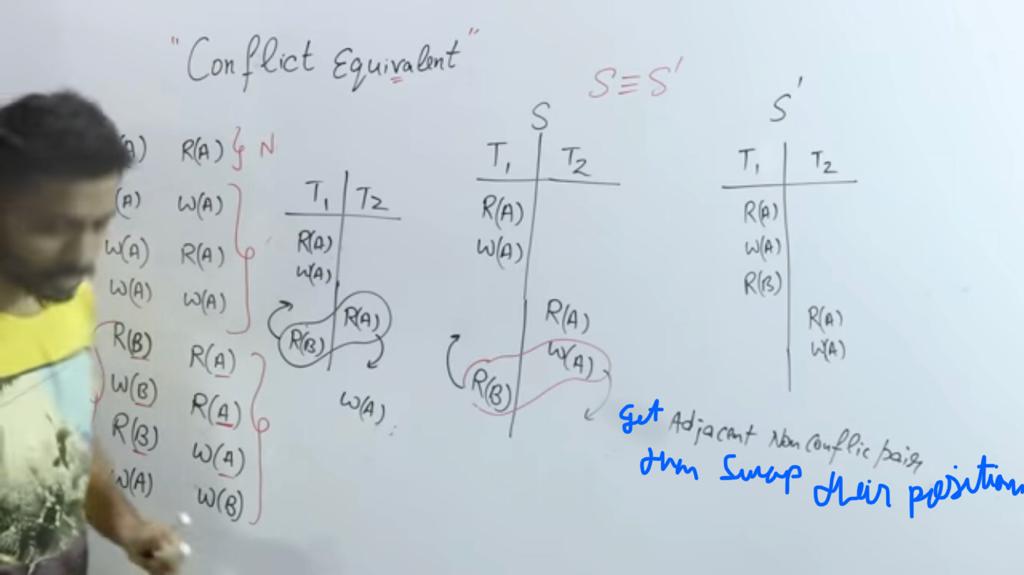 "Conflict Equivalent"
S≡S'
A) R(A) } N
(A) W(A)
W(A) R(A)
W(A) W(A)
R(B) R(A)
W(B) R(A)
R(B) W(A)
W(A) W(B)
T1 T2
R(A)
W(A)
R(A)
R(B)
W(A)
S
T1 T2
R(A)
W(A)
R(A)
W(A)
R(B)
S'
T1 T2
R(A)
W(A)
R(B)
R(A)
W(A)
get Adjacent Non conflic pair
then Swap their position